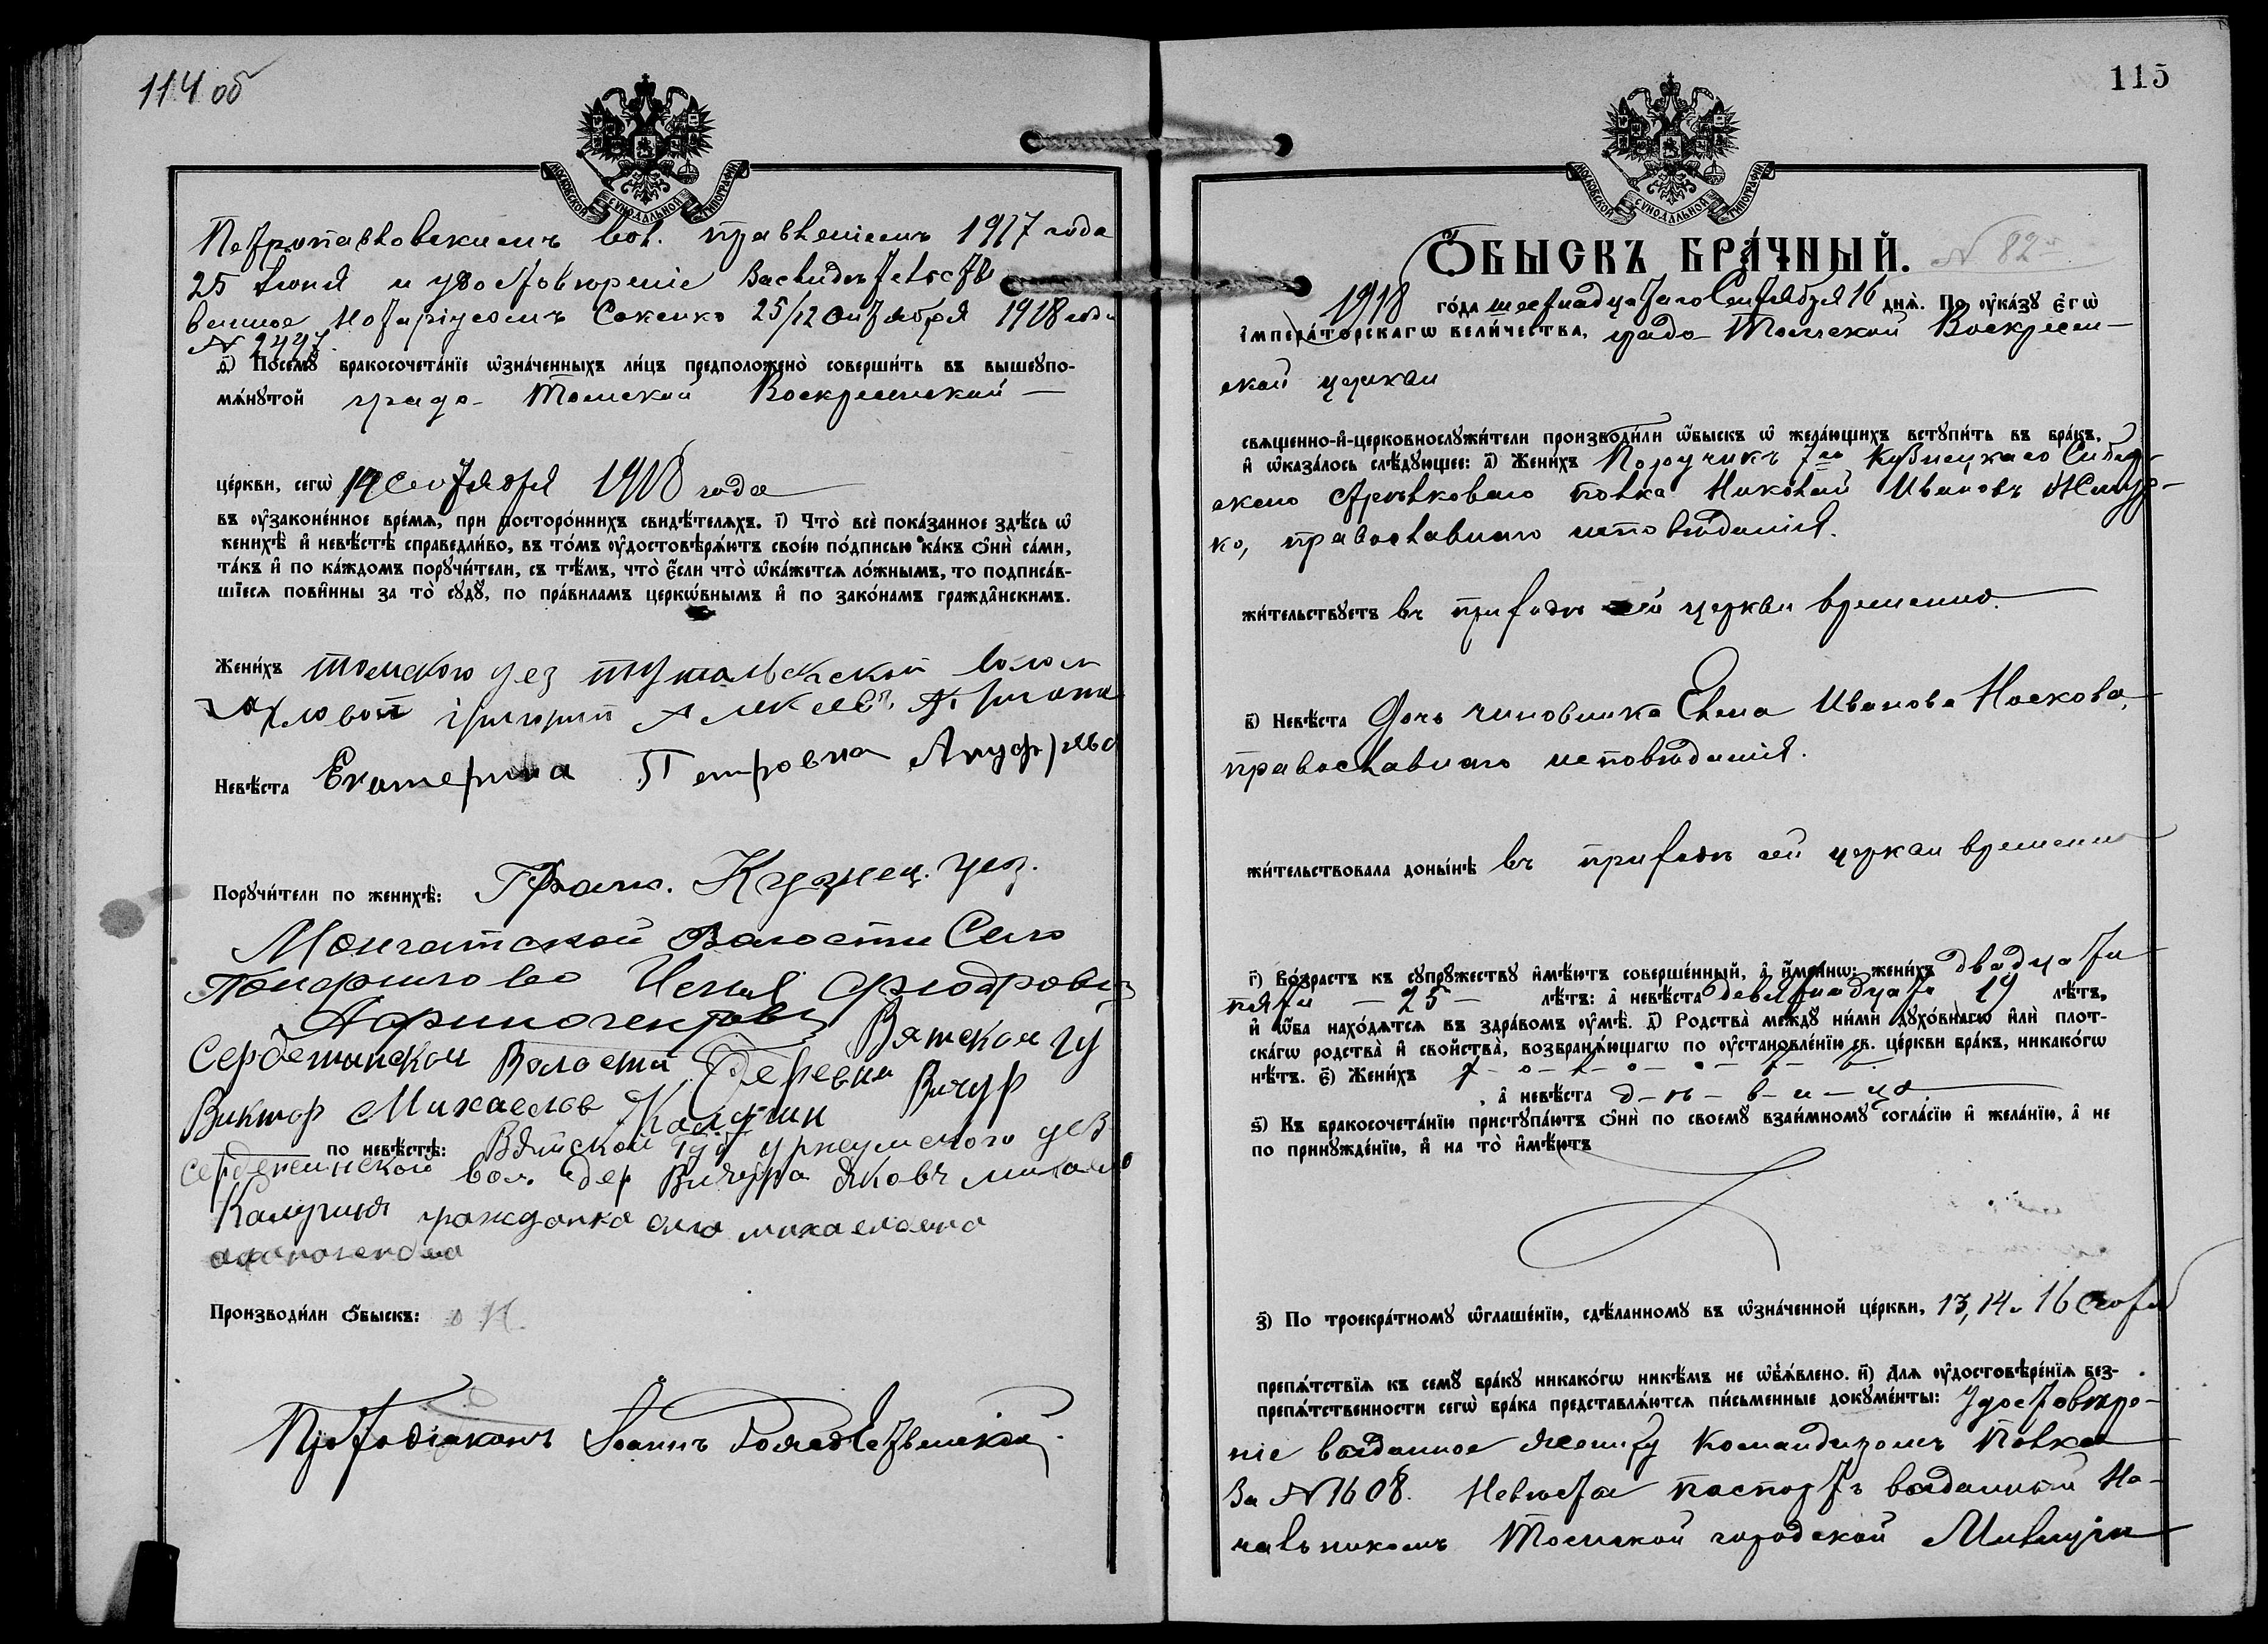 114 об
МОСКОВСКОЙ СѴНОДАЛЬНОЙ ТИПОГРАФІИ
Петропавловскимъ вол. правленіемъ 1917 года
25 Іюня и удостовѣреніе засвидѣтельство
ванное Нотаріусомъ 25/12 1918 года
№ 2447.
д҃) Посемꙋ̀ бракосочета́нїе ѡ҆зна́ченныхъ ли́цъ предположено̀ соверши́ть въ вышеꙋпо-
мѧ́нꙋтой градо-Томской Воскресенской
це́ркви, сегѡ̀ Сентября 1918 года
въ ᲂу҆зако́ненное вре́мѧ, при посторо́ннихъ свидѣ́телѧхъ. і҃) Что̀ всѐ пока́занное здѣ́сь ѡ҆
женихѣ̀ и҆ невѣ́стѣ справедли́во, въ то́мъ ᲂу҆достовѣрѧ́ютъ свое́ю по́дписью ка́къ ѻ҆нѝ са́ми,
та́къ и҆ по ка́ждомъ порꙋчи́тели, съ тѣ́мъ, что̀ є҆́сли что̀ ѡ҆ка́жетсѧ ло́жнымъ, то подписа́в-
шїесѧ пови́нны за то̀ сꙋдꙋ̀, по пра́виламъ церкѡ́внымъ и҆ по зако́намъ гражда́нскимъ.
Жени́хъ Томского уез волос
Григорий Алексеев.
Невѣ́ста Екатерина Петровна Ануфрьева
Порꙋчи́тели по женихѣ̀: Граж. Кузнец. уез.
Мунгатской Волости Село
Панфилово
Вятской гу
Сердежинской Волости Деревни Вичур
Виктор Михаелов Калугин
по невѣ́стѣ: Вятской Губ уржумского уез
сердежинской вол. дер Вичура Яковъ михаело
Калугинъ гражданка михаеловна
Производи́ли ѻ҆́быскъ:
Протодіаконъ Іоаннъ Рождественскій.
115
МОСКОВСКОЙ СѴНОДАЛЬНОЙ ТИПОГРАФІИ
Ѻ҆́БЫСКЪ БРА́ЧНЫЙ. № 82
1918 го́да шестнадцатаго Сентября 16 днѧ̀. По ᲂу҆ка́зꙋ є҆гѡ̀
і҆мпера́торскагѡ вели́чества, градо-Томской Воскресен-
ской церкви
свѧще́нно-и҆-церковнослꙋжи́тели производи́ли ѡ҆́быскъ ѡ҆ жела́ющихъ встꙋпи́ть въ бра́къ,
и҆ ѡ҆каза́лось слѣ́дꙋющее: а҃) Жени́хъ Поручикъ 7го Кузнецкаго Сибир-
скаго стрѣлковаго полка Николай Ивановъ
ко, православнаго исповѣданія.
жи́тельствꙋетъ въ приходѣ сей церкви временно.
в҃) Невѣ́ста Дочь чиновника Елена Иванова Носкова,
православнаго исповѣданія.
жи́тельствовала доны́нѣ въ приходѣ сей церкви временно
г҃) Во́зрастъ къ сꙋпрꙋ́жествꙋ и҆мѣ́ютъ соверше́нный, а҆ и҆́мєннѡ: жени́хъ двадцати
пяти – 25 – лѣ́тъ: а҆ невѣ́ста девятнадцати 19 лѣ́тъ,
и҆ ѡ҆́ба нахо́дѧтсѧ въ здра́вомъ ᲂу҆мѣ̀. д҃) Родства̀ междꙋ ни́ми дꙋхо́внагѡ и҆лѝ плот-
ска́гѡ родства̀ и҆ свойства̀, возбранѧ́ющагѡ по ᲂу҆становле́нїю св. це́ркви бра́къ, никако́гѡ
нѣ́тъ. є҃) Жени́хъ х-о-л-о-с-т-ъ
, а҆ невѣ́ста д-ѣ-в-и-ца
ѕ҃) Къ бракосочета́нїю пристꙋпа́ютъ ѻ҆нѝ по своемꙋ̀ взаи́мномꙋ согла́сїю и҆ жела́нїю, а҆ не
по принꙋжде́нїю, и҆ на то̀ и҆мѣ́ютъ
з҃) По троекра́тномꙋ ѡ҆глаше́нїю, сдѣ́ланномꙋ въ ѡ҆зна́ченной це́ркви, 13, 14 и 16 Сентя
препѧ́тствїѧ къ семꙋ̀ бра́кꙋ никако́гѡ никѣ́мъ не ѡ҆б̾ѧ́влено. и҃) Длѧ ᲂу҆достовѣре́нїѧ без-
препѧ́тственности сегѡ̀ бра́ка представлѧ́ютсѧ пи́сьменные докꙋме́нты: Удостовѣре-
ніе выданное жениху Командиромъ Полка
за № 1608. Невѣста паспортъ выданный На-
чальникомъ Томской городской Милиціи